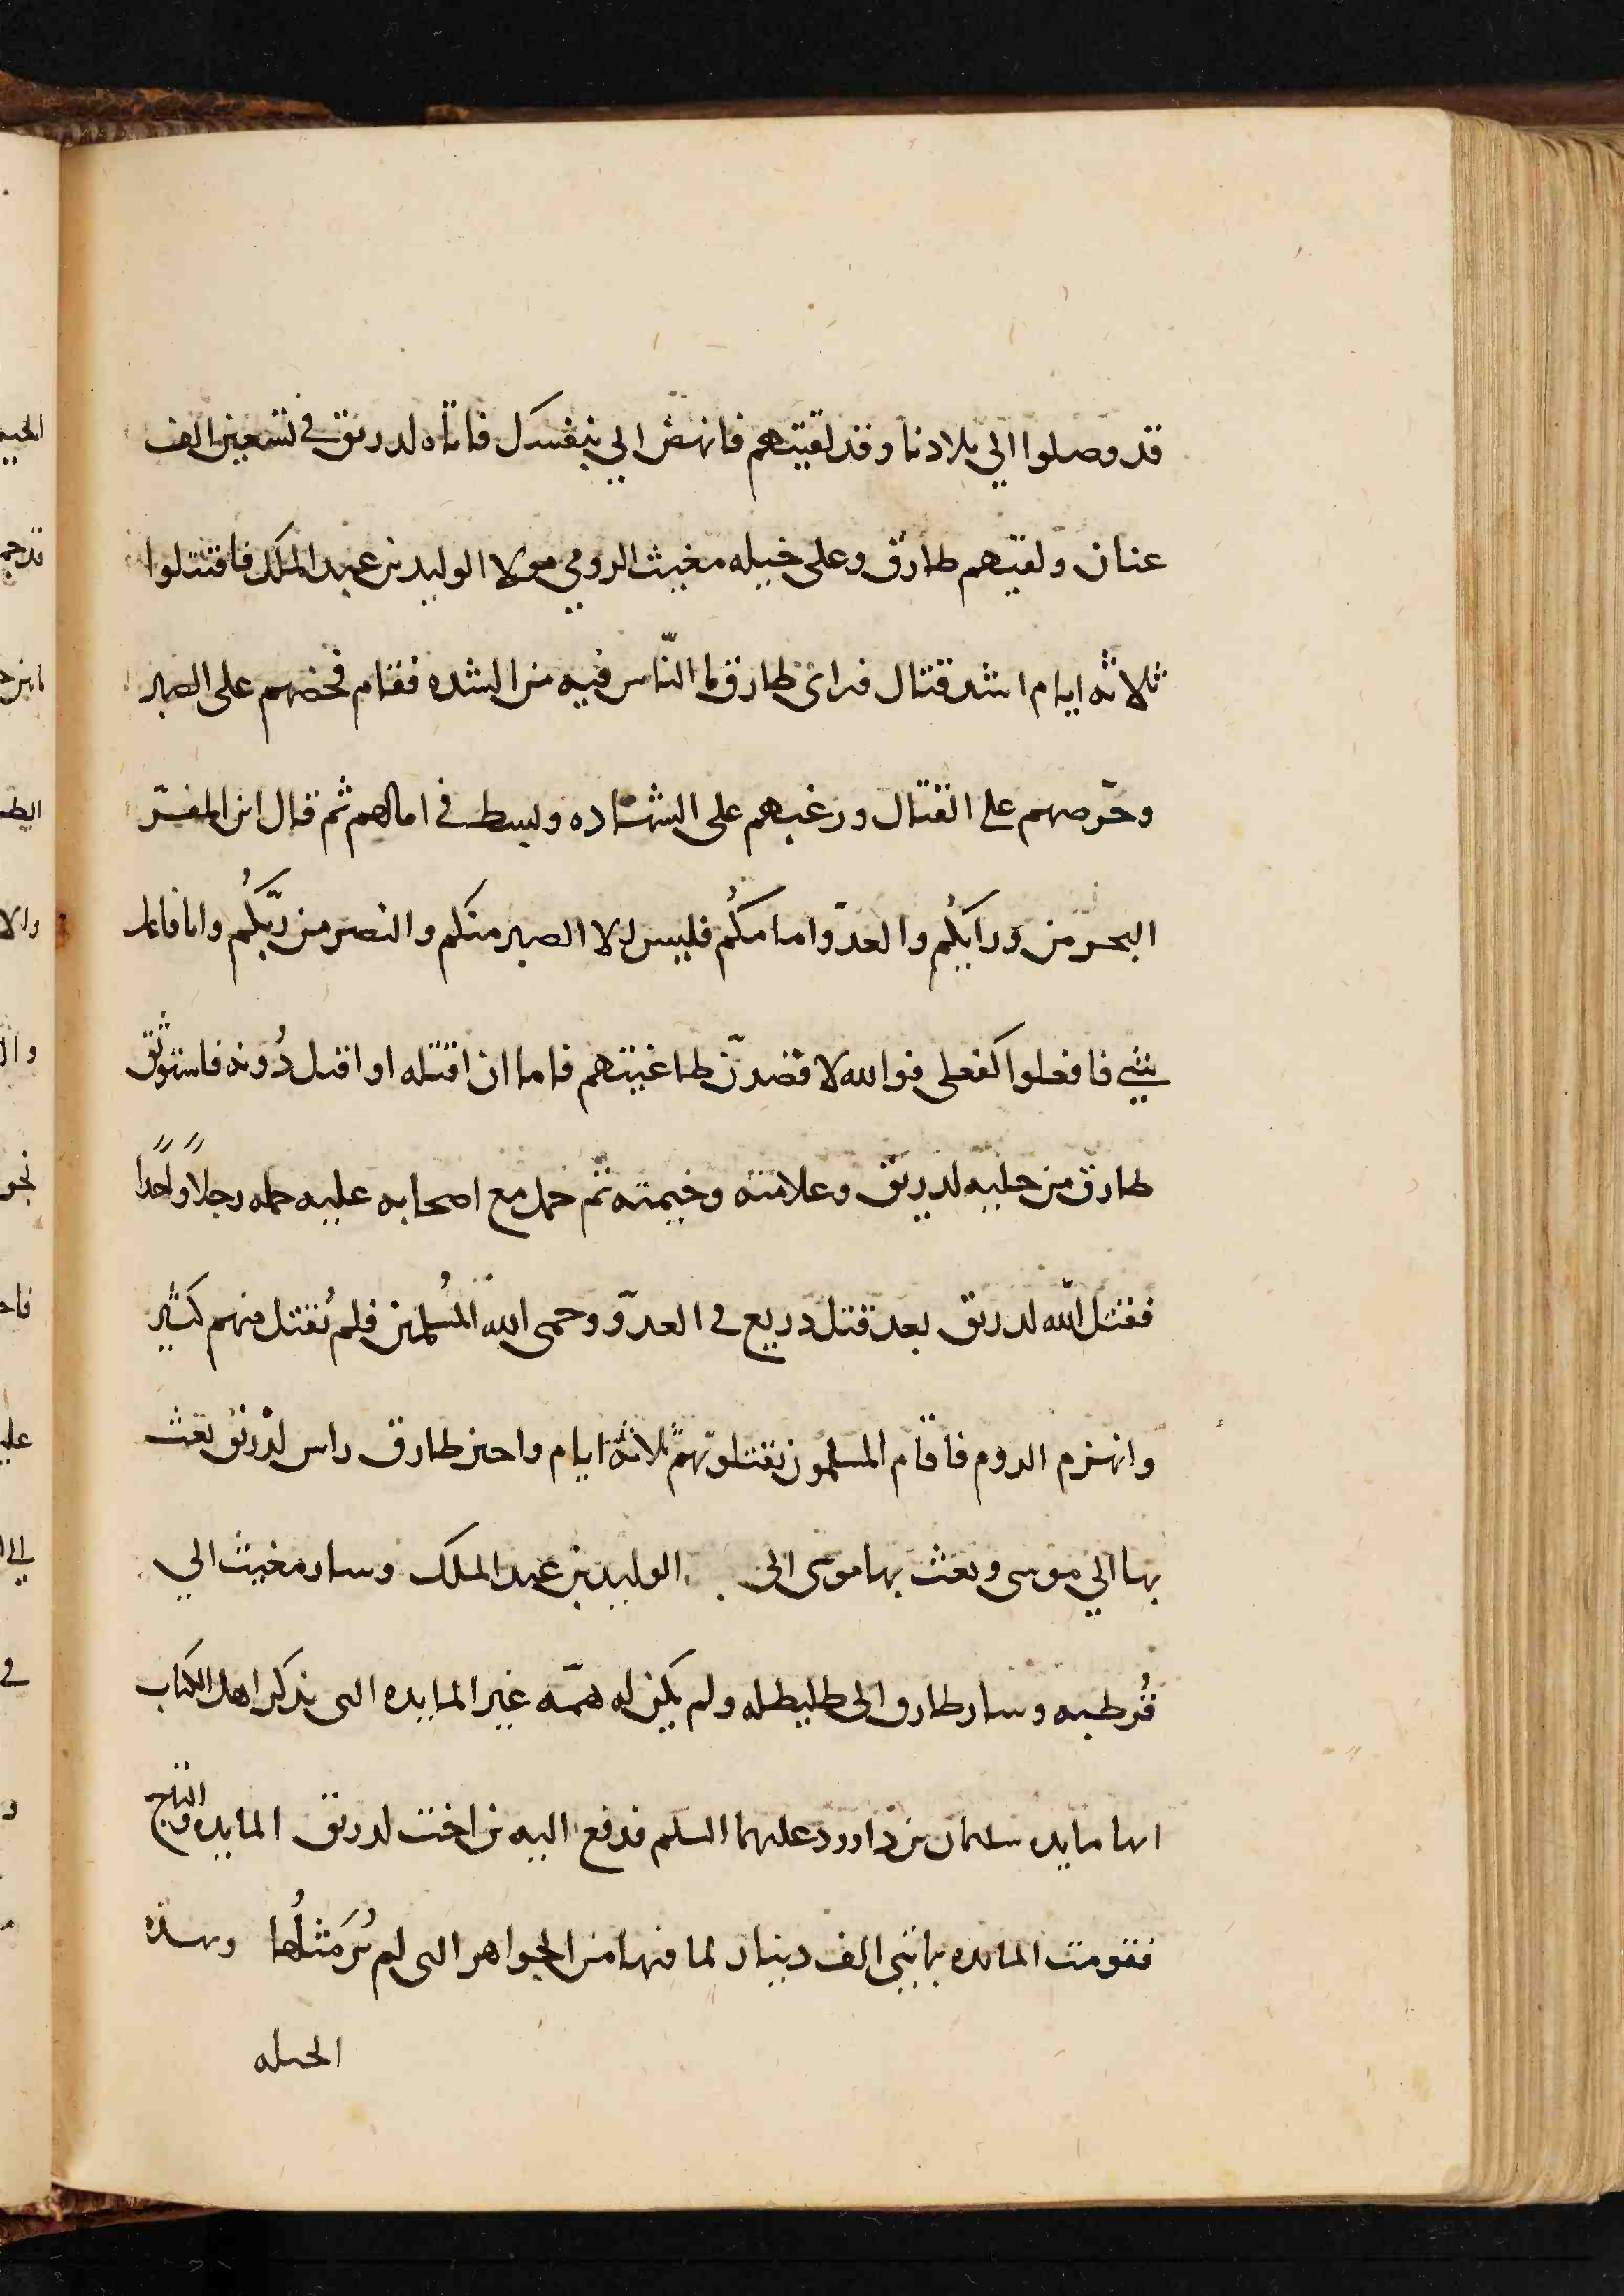 قد وصلوا الى بلادنا وقد لقيتهم فانهض الي بنفسك فاتاه لدريق في تسعين الف
عنان ولقيهم طارق وعلى خيله مغيث الرومي مولا الوليد بن عبد الملك فاقتتلوا
ثلاثه ايام اشد قتال فراى طارق ما النّاس فيه من الشده فقام فحضهم على الصبر
وحرّصهم على القتال ورغبهم على الشهاده وبسط في امالهم ثم قال اين المفرّ
البحر من ورايكُم والعدوّ امامكُم فليس الا الصبر منكم والنصر من ربّكُم وانا فاعل
شي فافعلوا كفعلي فوالله لاقصدنّ طاغيتهم فاما ان اقتله او اقتل دُونه فاستوثق
طارق من حليه لدريق وعلامته وخيمته ثم حمل مع اصحابه عليه حمله رجلاً واحداً
فقتل الله لدريق بعد قتل ذريع في العدوّ وحمى الله المُسلمين فلم يُقتل منهم كثير
وانهزم الروم فاقام المسلمون يقتلونهم ثلاثة ايام واحتز طارق راس لذريق بعث
بها الي موسى وبعث بها موسى الى الوليد بن عبد الملك وسار مغيث الي
قُرطبه وسار طارق الى طليطله ولم يكن له همّه غير المايده التى يذكر اهل الكتاب
انها مايده سليمان بن داوود عليهما السلم فدفع اليه بن اخت لدريق المايده والتاج
فقومت المايده بمايتى الف دينار لما فيها من الجواهر التى لم يُرَ مثلُها وبهذه
الحيله